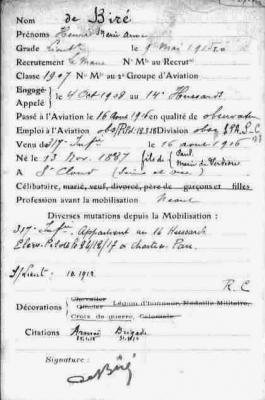 Nom de Biré
Prénoms Henri Marie
Grade Lieut le 9 Mai 1916
Recrutement Le Mans N° Mle au Recrut
Classe 1907 N° Mle au 2e Groupe d'Aviation
Engagé
Appelé le 4 Oct 1908 au 14e Hussards
Passé à l'Aviation le 16 Août 1916 en qualité de observateur
Emploi à l'Aviation Division
Venu du 317e Infie le 16 août 1916
Né le 13 Nov. 1887 fils de Paul
Marie de
A St Cloud (Seine et Oise)
Célibataire, marié, veuf, divorcé, père de garçons et filles
Profession avant la mobilisation Néant
Diverses mutations depuis la Mobilisation :
317e Infie. Appartient au 14 Hussards
Elève Pilote le à Chartres Pau.
S/Lieut : 10.1912
R. C
Chevalier
Décorations Officier Légion d'honneur, Médaille Militaire,
Croix de guerre, Coloniale
Citations Armée Brigade
Signature :
de Biré